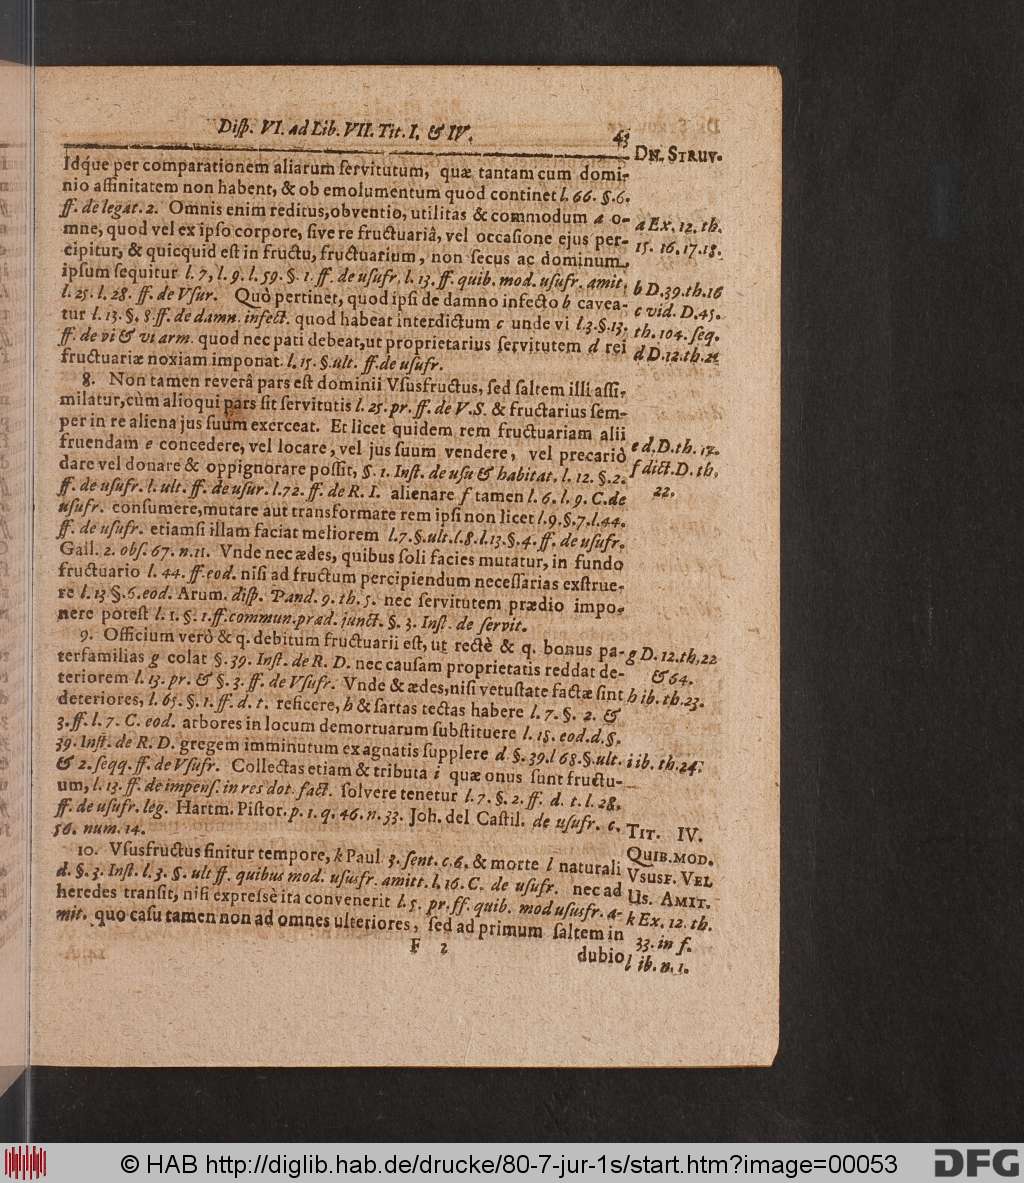 Disp. VI. ad Lib. VII. Tit. I. & IV. 43
Idq́ue per comparationem aliarum servitutum, quæ tantam cum domi-
nio affinitatem non habent, & ob emolumentum quod continet l. 66. §. 6.
ff. de legat. 2. Omnis enim reditus, obventio, utilitas & commodum a o-
mne, quod vel ex ipso corpore, sive re fructuariâ, vel occasione ejus per-
cipitur, & quicquid est in fructu, fructuarium, non secus ac dominum
ipsum sequitur l. 7, l. 9. l. 59. §. 1. ff. de usufr. l. 13. ff. quib. mod. usufr. amit.
l. 25. l. 28. ff. de Vsur. Quò pertinet, quod ipsi de damno infecto b cavea-
tur l. 13. §. 8. ff. de damn. infect. quod habeat interdictum c unde vi l. 3. §. 13.
ff. de vi & vi arm. quod nec pati debeat, ut proprietarius servitutem d rei
fructuariæ noxiam imponat. l. 15. §. ult. ff. de usufr.
8. Non tamen reverâ pars est dominii Vsusfructus, sed saltem illi assi-
milatur, cùm alioqui pars sit servitutis l. 25. pr. ff. de V. S. & fructarius sem-
per in re aliena jus suum exerceat. Et licet quidem rem fructuariam alii
fruendam e concedere, vel locare, vel jus suum vendere, vel precariò
dare vel donare & oppignorare possit, §. 1. Inst. de usu & habitat. l. 12. §. 2.
ff. de usufr. l. ult. ff. de usur. l. 72. ff. de R. I. alienare f tamen l. 6. l. 9. C. de
usufr. consumere, mutare aut transformare rem ipsi non licet l. 9. §. 7. l. 44.
ff. de usufr. etiamsi illam faciat meliorem l. 7. §. ult. l. 8. l. 13. §. 4. ff. de usufr.
Gail. 2. obs. 67. n. 11. Vnde nec ædes, quibus soli facies mutatur, in fundo
fructuario l. 44. ff. eod. nisi ad fructum percipiendum necessarias exstrue-
re l. 13 §. 6. eod. Arum. disp. Pand. 9. th. 5. nec servitutem prædio impo-
nere potest l. 1. §. 1. ff. commun. præd. junct. §. 3. Inst. de servit.
9. Officium verò & q. debitum fructuarii est, ut rectè & q. bonus pa-
terfamilias g colat §. 39. Inst. de R. D. nec causam proprietatis reddat de-
teriorem l. 13. pr. & §. 3. ff. de Vsufr. Vnde & ædes, nisi vetustate factæ sint
deteriores, l. 65. §. 1. ff. d. t. reficere, h & sartas tectas habere l. 7. §. 2. &
3. ff. l. 7. C. eod. arbores in locum demortuarum substituere l. 18. eod. d. §.
39. Inst. de R. D. gregem imminutum ex agnatis supplere d. §. 39. l 68. §. ult.
& 2. seqq. ff. de Vsufr. Collectas etiam & tributa i quæ onus sunt fructu-
um, l. 13. ff. de impens. in res dot. fact. solvere tenetur l. 7. §. 2. ff. d. t. l. 28.
ff. de usufr. leg. Hartm. Pistor. p. 1. q. 46. n. 33. Joh. del Castil. de usufr. c.
56. num. 14.
10. Vsusfructus finitur tempore, k Paul 3. sent. c. 6. & morte l naturali
d. §. 3. Inst. l. 3. §. ult ff. quibus mod. ususfr. amitt. l. 16. C. de usufr. nec ad
heredes transit, nisi expressè ita convenerit l. 5. pr. ff. quib. mod ususfr. a-
mit. quo casu tamen non ad omnes ulteriores, sed ad primum saltem in
F 2 dubio
DN. STRUV.
a Ex. 12. th.
15. 16. 17. 18.
b D. 39. th. 16
c vid. D. 45.
th. 104. seq.
d D. 12. th. 21
e d. D. th. 17.
f dict. D. th.
22.
g D. 12. th. 22
& 64.
h ib. th. 23.
i ib. th. 24.
TIT. IV.
QUIB. MOD.
VSUSF. VEL
US. AMIT.
k Ex. 12. th.
33. in f.
l ib. n. 1.
© HAB http://diglib.hab.de/drucke/80-7-jur-1s/start.htm?image=00053
DFG